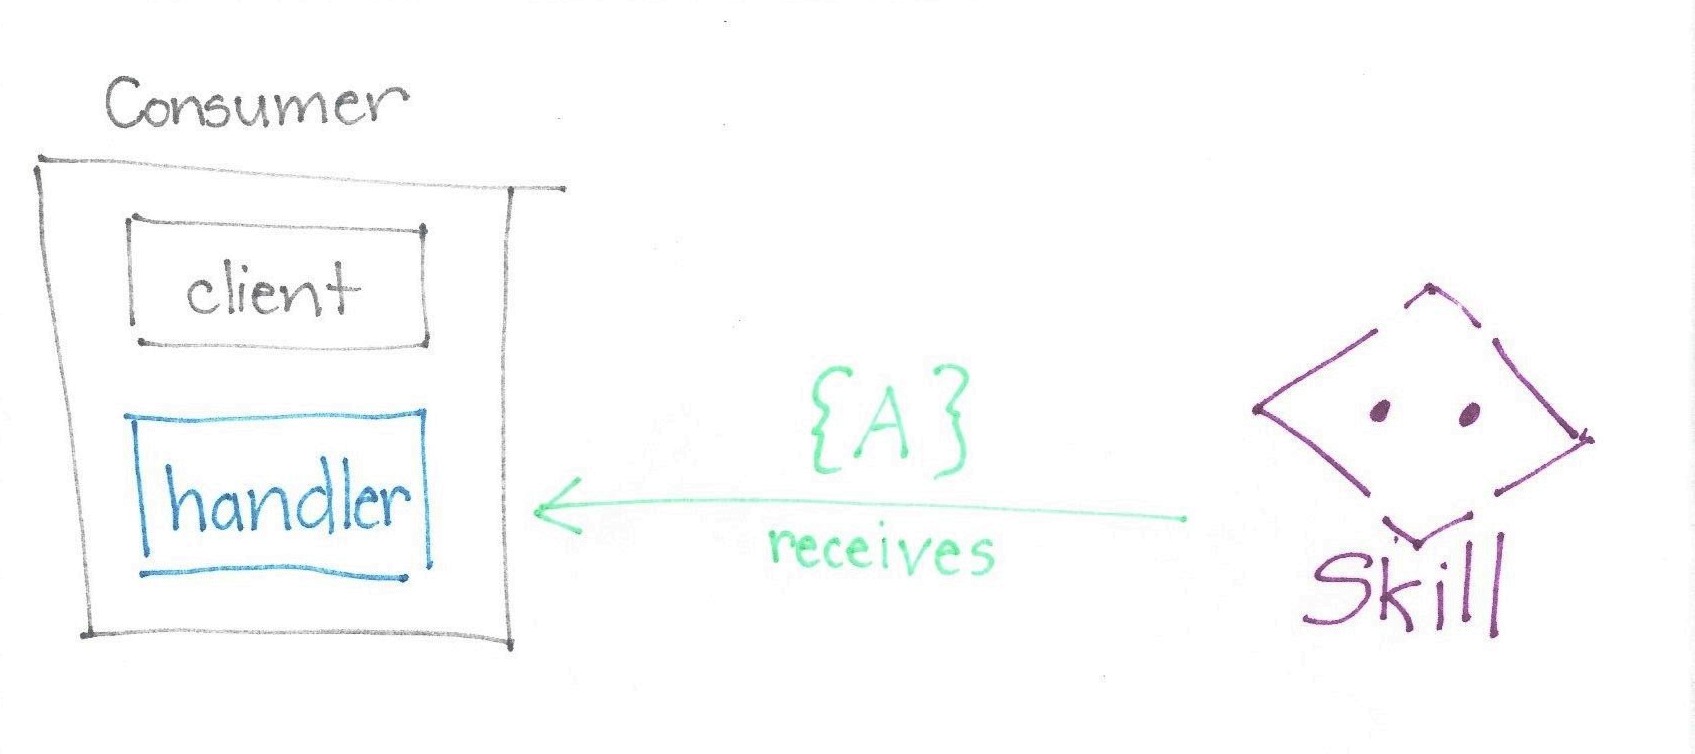 Consumer
client
handler
{A}
receives
Skill